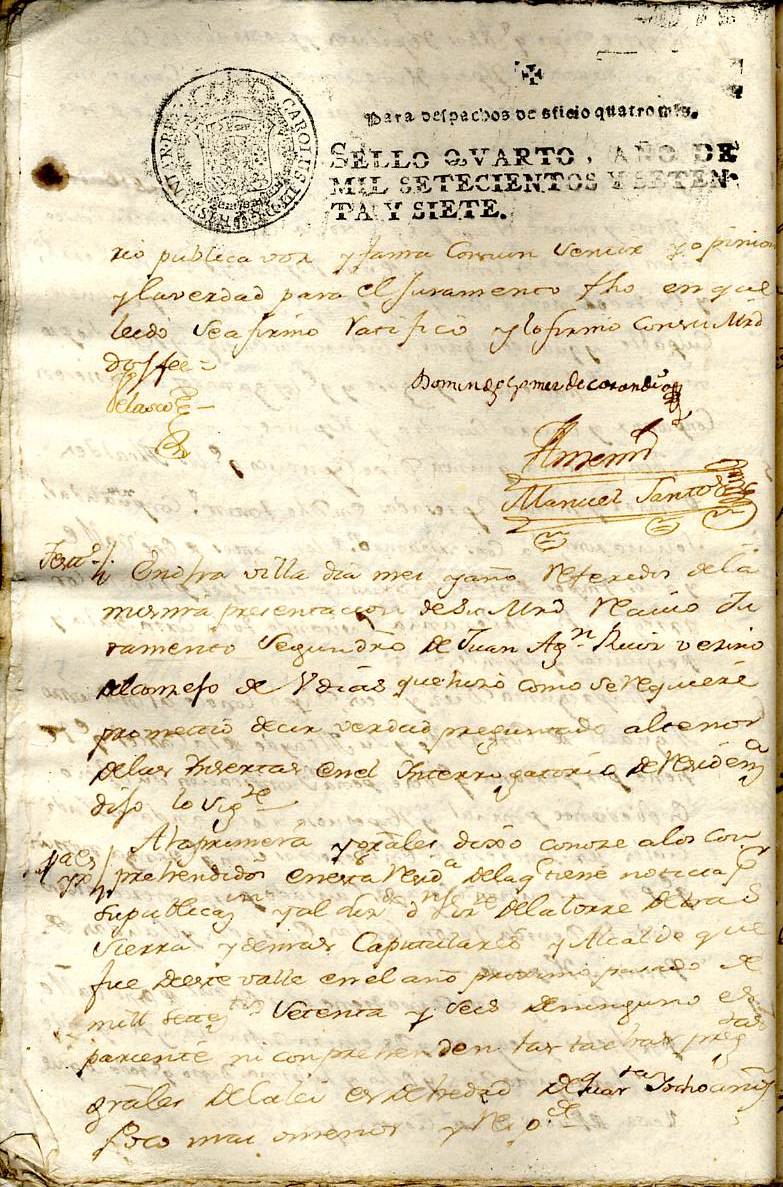 CAROLUS III D G HISPANIAR REX
Para despachos de oficio quatro mrs.
SELLO QVARTO, AÑO DE
MIL SETECIENTOS Y SETEN-
TA Y SIETE.
rio publica voz y fama Comun sentir y opinion
y la verdad para el Juramento fho en que
leido se afirmo Ratificó y lo firmo con su Mrd
doi fee =
Velasco
Domingo Gomez de corandi
Antemi
Manuel Santos
Testº
En dha villa dia mes y año referedos de la
misma presentacion de Su Mrd Recivio Ju
ramento Segundrô de Juan Agn Ruiz vezino
del conzejo de Vdias que hizo como se requiere
prometió decir verdad preguntado al tenor
de las Insertas en el Interrogatorio de Residena
dijo lo sigte
A la primera y grâles dixo conoze a los Com
prehendidos en esta Resida de la q tiene noticia
su publicazn y al
de la torre de tra
Sierra y demas Capitulares y Alcalde que
fue deste valle en el año proximo pasado de
mill settetos Setenta y Seis de ninguno es
pariente ni conprehenden las tachas pregtas
grâles de la lei es de hedad de quarta y ocho años
Poco mas omenos y Respde